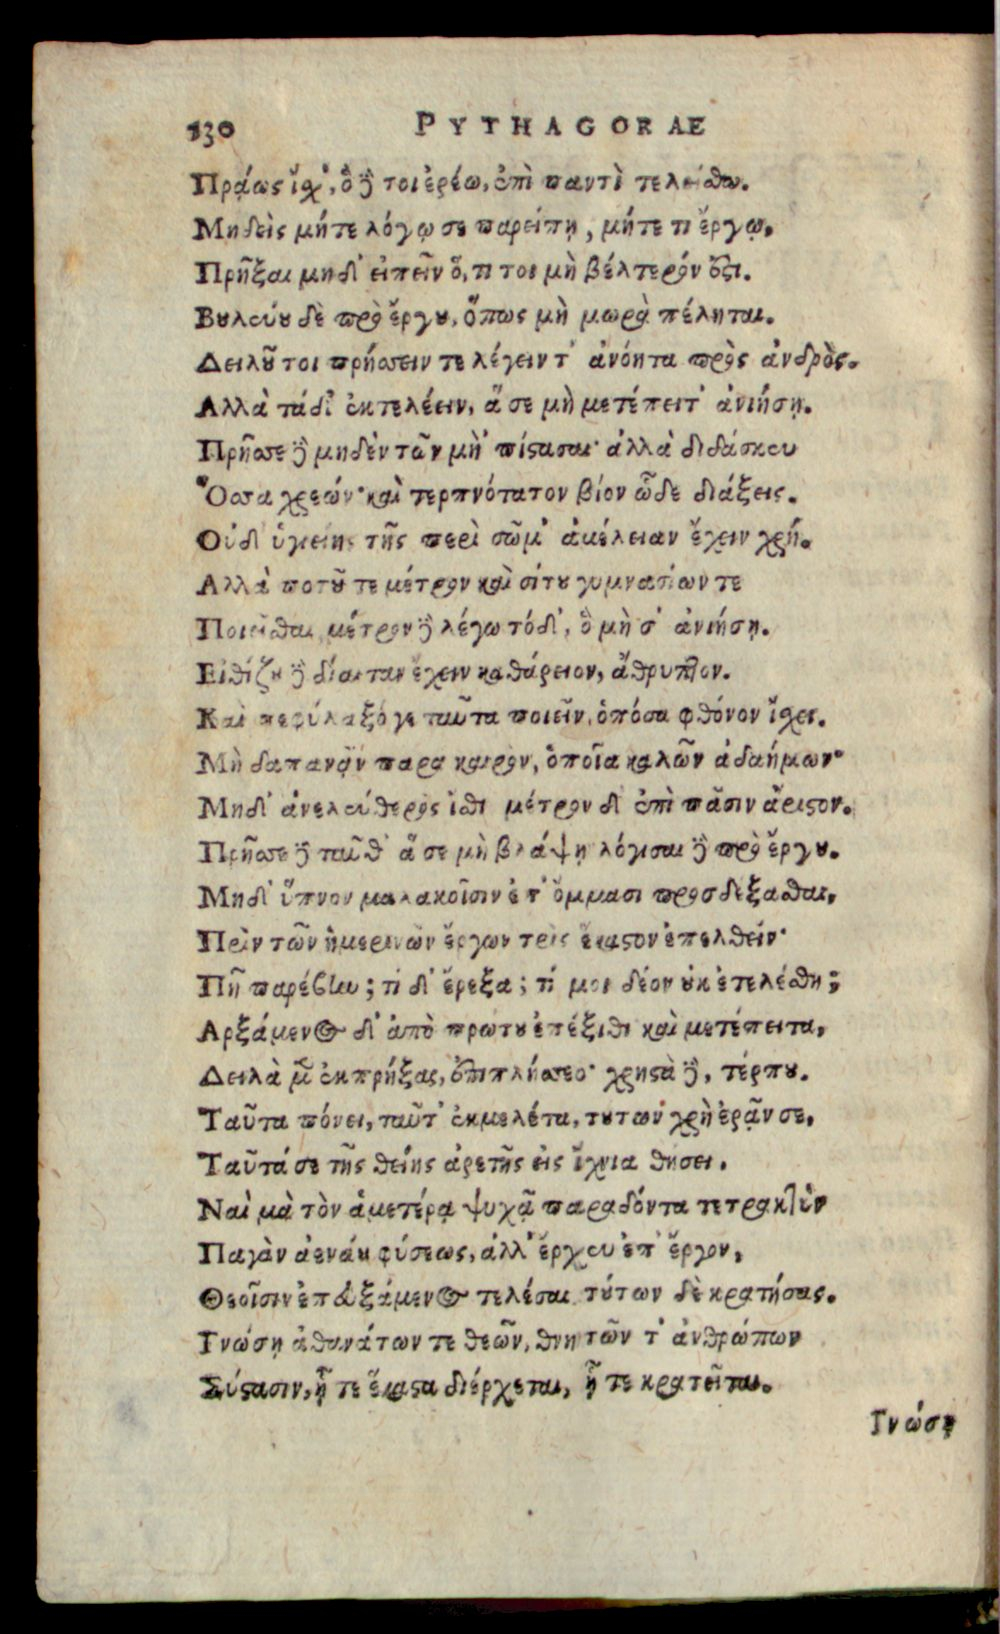 130 PYTHAGORAE
Πρᾴως ἴσχ', ὃ δέ τοι ἐρέω, ἐπὶ παντὶ τελείσθω.
Μηδεὶς μήτε λόγῳ σε παρείπῃ, μήτε τι ἔργῳ,
Πρῆξαι μηδ' εἰπεῖν ὅ, τι τοι μὴ βέλτερόν ἐστι.
Βουλεύου δὲ πρὸ ἔργου, ὅπως μὴ μωρὰ πέληται.
Δειλοῦ τοι πρήσσειν τε λέγειν τ' ἀνόητα πρὸς ἀνδρὸς.
Αλλὰ τάδ' ἐκτελέειν, ἅ σε μὴ μετέπειτ' ἀνιήσῃ.
Πρῆσσε δὲ μηδὲν τῶν μὴ 'πίστασαι· ἀλλὰ διδάσκευ
Ὅσσα χρεών· καὶ τερπνότατον βίον ὧδε διάξεις.
Οὐδ' ὑγιείης τῆς περὶ σῶμ' ἀμέλειαν ἔχειν χρή.
Αλλὰ ποτοῦ τε μέτρον καὶ σίτου γυμνασίων τε
Ποιεῖσθαι, μέτρον δὲ λέγω τόδ', ὃ μὴ σ' ἀνιήσῃ.
Εἰθίζου δὲ δίαιταν ἔχειν καθάρειον, ἄθρυπτον.
Καὶ πεφύλαξό γε ταῦτα ποιεῖν, ὁπόσα φθόνον ἴσχει.
Μὴ δαπανᾷν παρὰ καιρὸν, ὁποῖα καλῶν ἀδαήμων·
Μηδ' ἀνελεύθερος ἴσθι μέτρον δ' ἐπὶ πᾶσιν ἄριστον.
Πρῆσσε δὲ ταῦθ' ἅ σε μὴ βλάψῃ λόγισαι δὲ πρὸ ἔργου.
Μηδ' ὕπνον μαλακοῖσιν ἐπ' ὄμμασι προσδέξασθαι,
Πρὶν τῶν ἡμερινῶν ἔργων τρὶς ἕκαστον ἐπελθεῖν·
Πῆ παρέβην; τί δ' ἔρεξα; τί μοι δέον οὐκ ἐτελέσθη;
Αρξάμενος δ' ἀπὸ πρώτου ἐπέξιθι καὶ μετέπειτα,
Δειλὰ μὲν ἐκπρήξας, ἐπιπλήσσεο· χρηστὰ δὲ, τέρπου.
Ταῦτα πόνει, ταῦτ' ἐκμελέτα, τούτων χρὴ ἐρᾷν σε,
Ταῦτά σε τῆς θείης ἀρετῆς εἰς ἴχνια θήσει.
Ναὶ μὰ τὸν ἁμετέρᾳ ψυχᾷ παραδόντα τετρακτὺν
Παγὰν ἀενάου φύσεως, ἀλλ' ἔρχευ ἐπ' ἔργον,
Θεοῖσιν ἐπευξάμενος τελέσαι τούτων δὲ κρατήσας.
Γνώσῃ ἀθανάτων τε θεῶν, θνητῶν τ' ἀνθρώπων
Σύστασιν, ᾗ τε ἕκαστα διέρχεται, ᾗ τε κρατεῖται.
Γνώσῃ